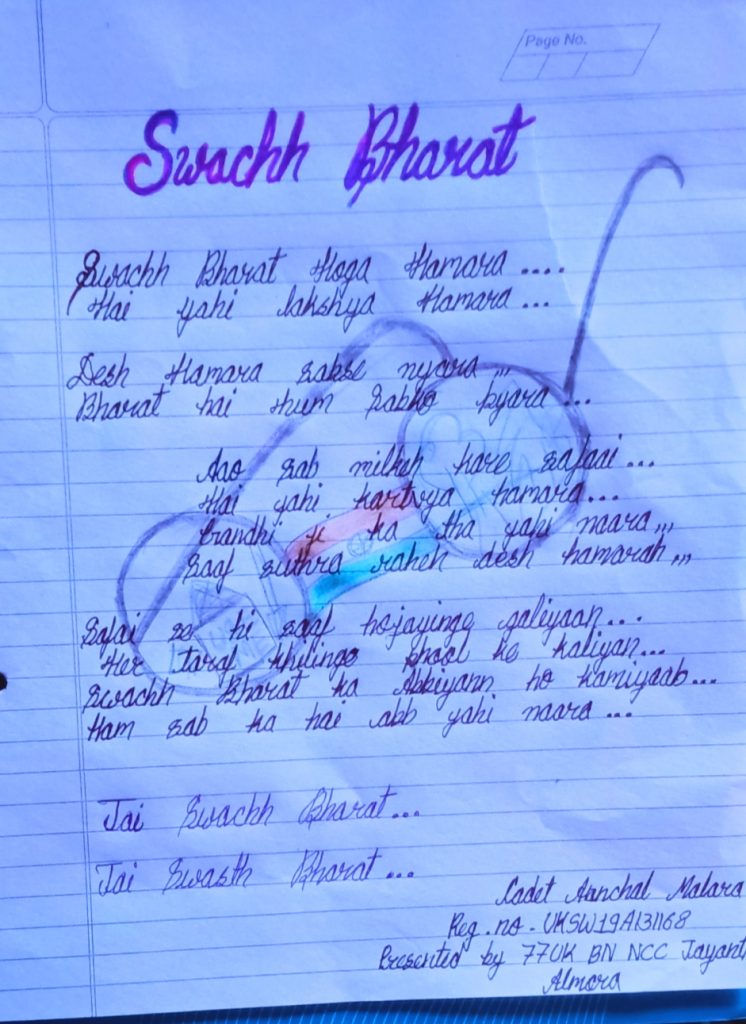 Page No.
Swachh Bharat
Swachh Bharat Hoga Hamara ....
Hai yahi lakshya Hamara ...
Desh Hamara sabse nyara ,,,
Bharat hai Hum Sabko pyara ...
Aao sab milkeh kare safaai ...
Hai yahi kartvya hamara ...
Gandhi ji ka tha yahi naara ,,,
Saaf suthra raheh desh hamarah ,,,
Safai se hi saaf hojayinge galiyaan ...
Her taraf khilinge phool ke kaliyan ...
Swachh Bharat ka Abhiyann ho kamiyaab ...
Ham sab ka hai abb yahi naara ...
Jai Swachh Bharat ...
Jai Swasth Bharat ...
Cadet Aanchal Malara
Reg.no - UKSW19A131168
Presented by 77UK BN NCC Jayanti
Almora